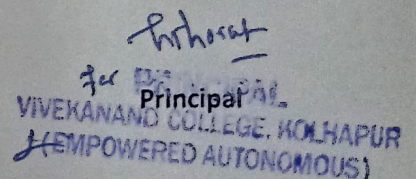 for PRINCIPAL
Principal
VIVEKANAND COLLEGE, KOLHAPUR
(EMPOWERED AUTONOMOUS)